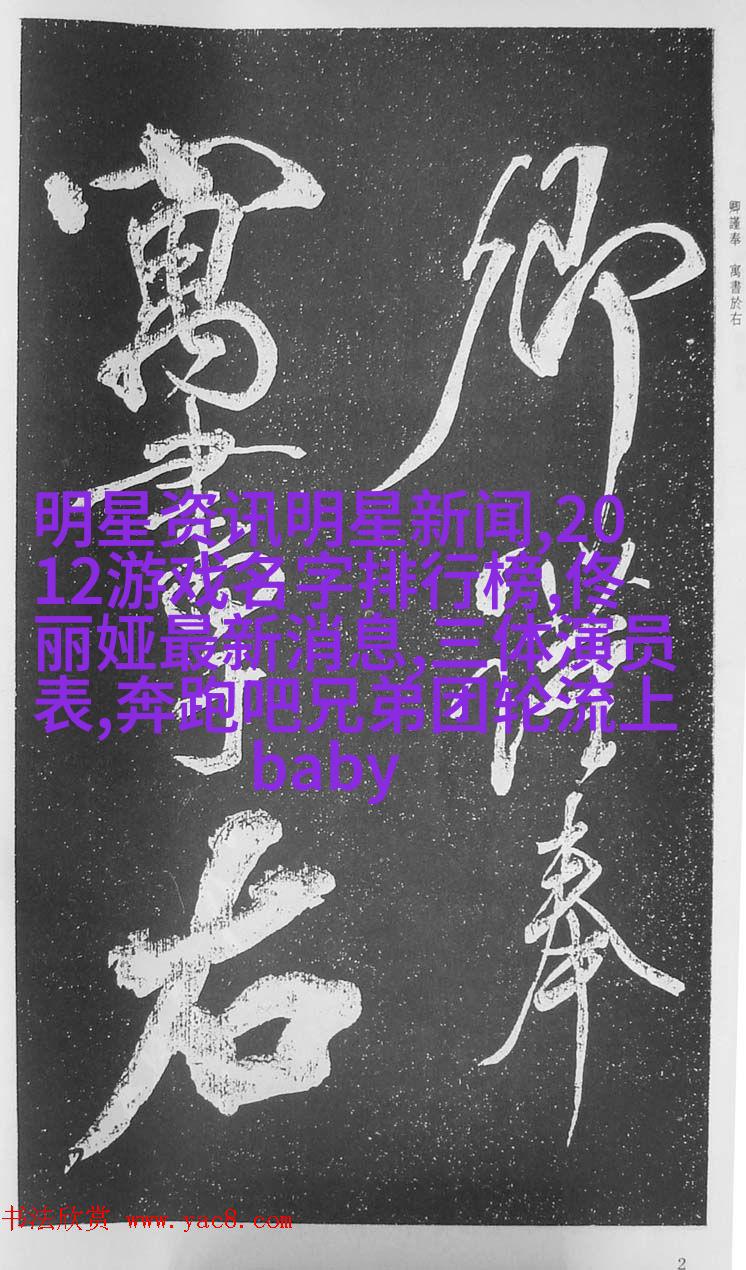 卿謹奉
寓書於右
卿謹奉　寓書於右
明星资讯明星新闻,20
12游戏名字排行榜,佟
丽娅最新消息,三体演员
表,奔跑吧兄弟团轮流上
baby
书法欣赏 www.yac8.com
2